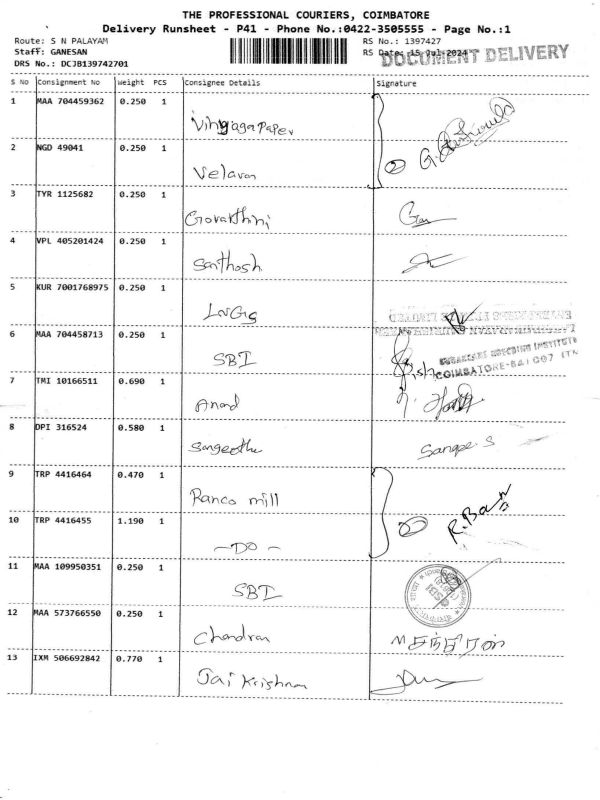 THE PROFESSIONAL COURIERS, COIMBATORE
Delivery Runsheet - P41 - Phone No.:0422-3505555 - Page No.:1
Route: S N PALAYAM
RS No.: 1397427
Staff: GANESAN
RS Date: 15 Jul 2024
DOCUMENT DELIVERY
DRS No.: DCJB139742701
S No Consignment No Weight PCS Consignee Details Signature
1 MAA 704459362 0.250 1
2 NGD 49041 0.250 1 Velavan
3 TYR 1125682 0.250 1 Govarthini
4 VPL 405201424 0.250 1 Santhosh
5 KUR 7001768975 0.250 1
6 MAA 704458713 0.250 1 SBI
SUGARCANE BREEDING INSTITUTE
COIMBATORE-641 007 (TN
7 TMI 10166511 0.690 1 Anand
8 DPI 316524 0.580 1 Sangeetha
9 TRP 4416464 0.470 1 Ranco mill
10 TRP 4416455 1.190 1 -DO- 2 R.Ban
11 MAA 109950351 0.250 1 SBI
12 MAA 573766550 0.250 1 Chandran
13 IXM 506692842 0.770 1 Jai Krishnan